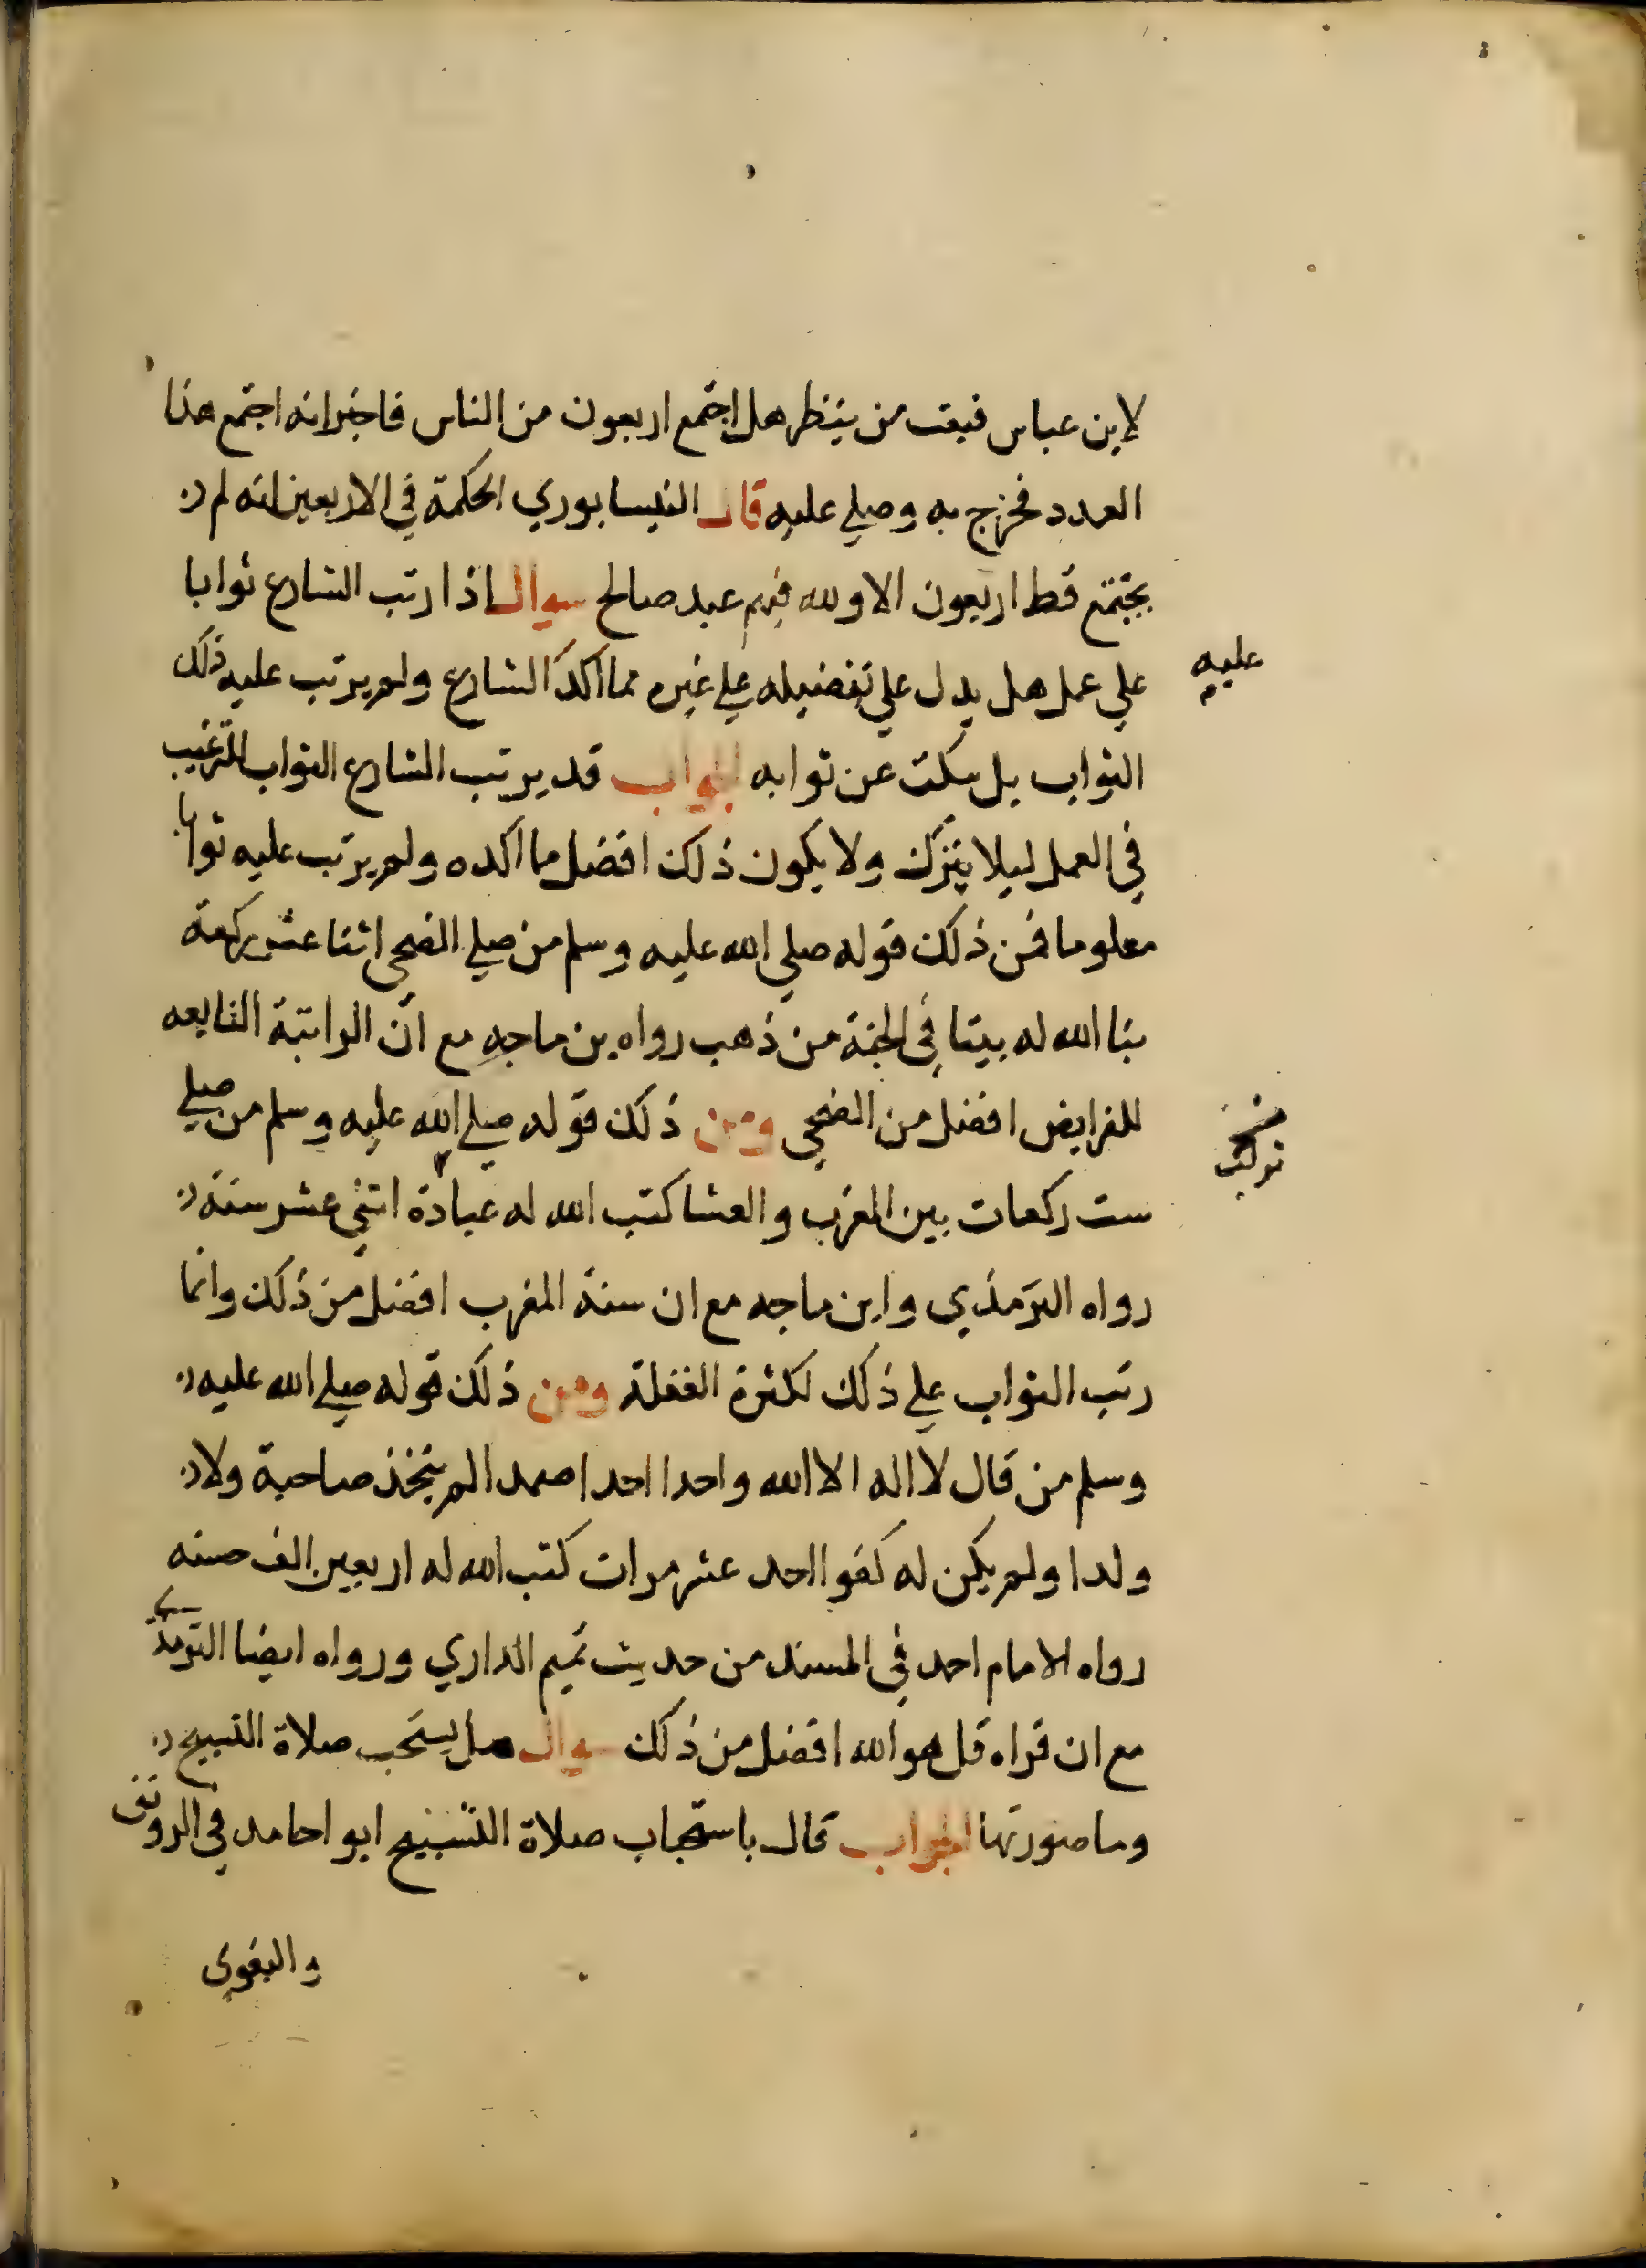 لابن عباس فبعث من ينظر هل اجتمع اربعون من الناس فاخبرانه اجتمع هذا
العدد فخرج به وصلي عليه قال النيسابوري الحكمة في الاربعين انه لم
يجتمع قط اربعون الا ولله فيهم عبد صالح سوال اذا رتب الشارع ثوابا
علي عمل هل يدل علي تفضيله علي غيره مما اكد الشارع ولم يرتب عليه ذلك
عليه
الثواب بل سكت عن ثوابه الجواب قد يرتب الشارع الثواب للترغيب
في العمل ليلا يترك ولا يكون ذلك افضل مما اكده ولم يرتب عليه ثوابا
معلوما فمن ذلك قوله صلي الله عليه وسلم من صلي الضحي اثنا عشر ركعة
بنا الله له بيتا في الجنة من ذهب رواه بن ماجه مع ان الراتبة التابعه
للفرايض افضل من الضحي ومن ذلك قوله صلي الله عليه وسلم من صلي
ست ركعات بين المغرب والعشا كتب الله له عبادة اثني عشر سنة
رواه الترمذي وابن ماجه مع ان سنة المغرب افضل من ذلك وانما
رتب الثواب علي ذلك لكثرة الغفلة ومن ذلك قوله صلي الله عليه
وسلم من قال لا اله الا الله واحدا احدا صمدا لم يتخذ صاحبة ولا
ولدا ولم يكن له كفوا احد عشر مرات كتب الله له اربعين الف حسنه
رواه الامام احمد في المسند من حديث تميم الداري ورواه ايضا الترمذي
مع ان قراه قل هو الله افضل من ذلك سوال هل يستحب صلاة التسبيح
وما صورتها الجواب قال باستحباب صلاة التسبيح ابو احامد في الرونق
والبغوى